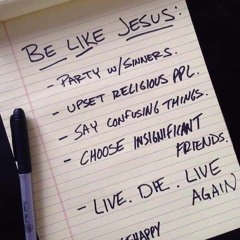 BE LIKE JESUS:
- PARTY W/SINNERS.
- UPSET RELIGIOUS PPL.
- SAY CONFUSING THINGS.
- CHOOSE INSIGNIFICANT
FRIENDS.
- LIVE. DIE. LIVE
AGAIN